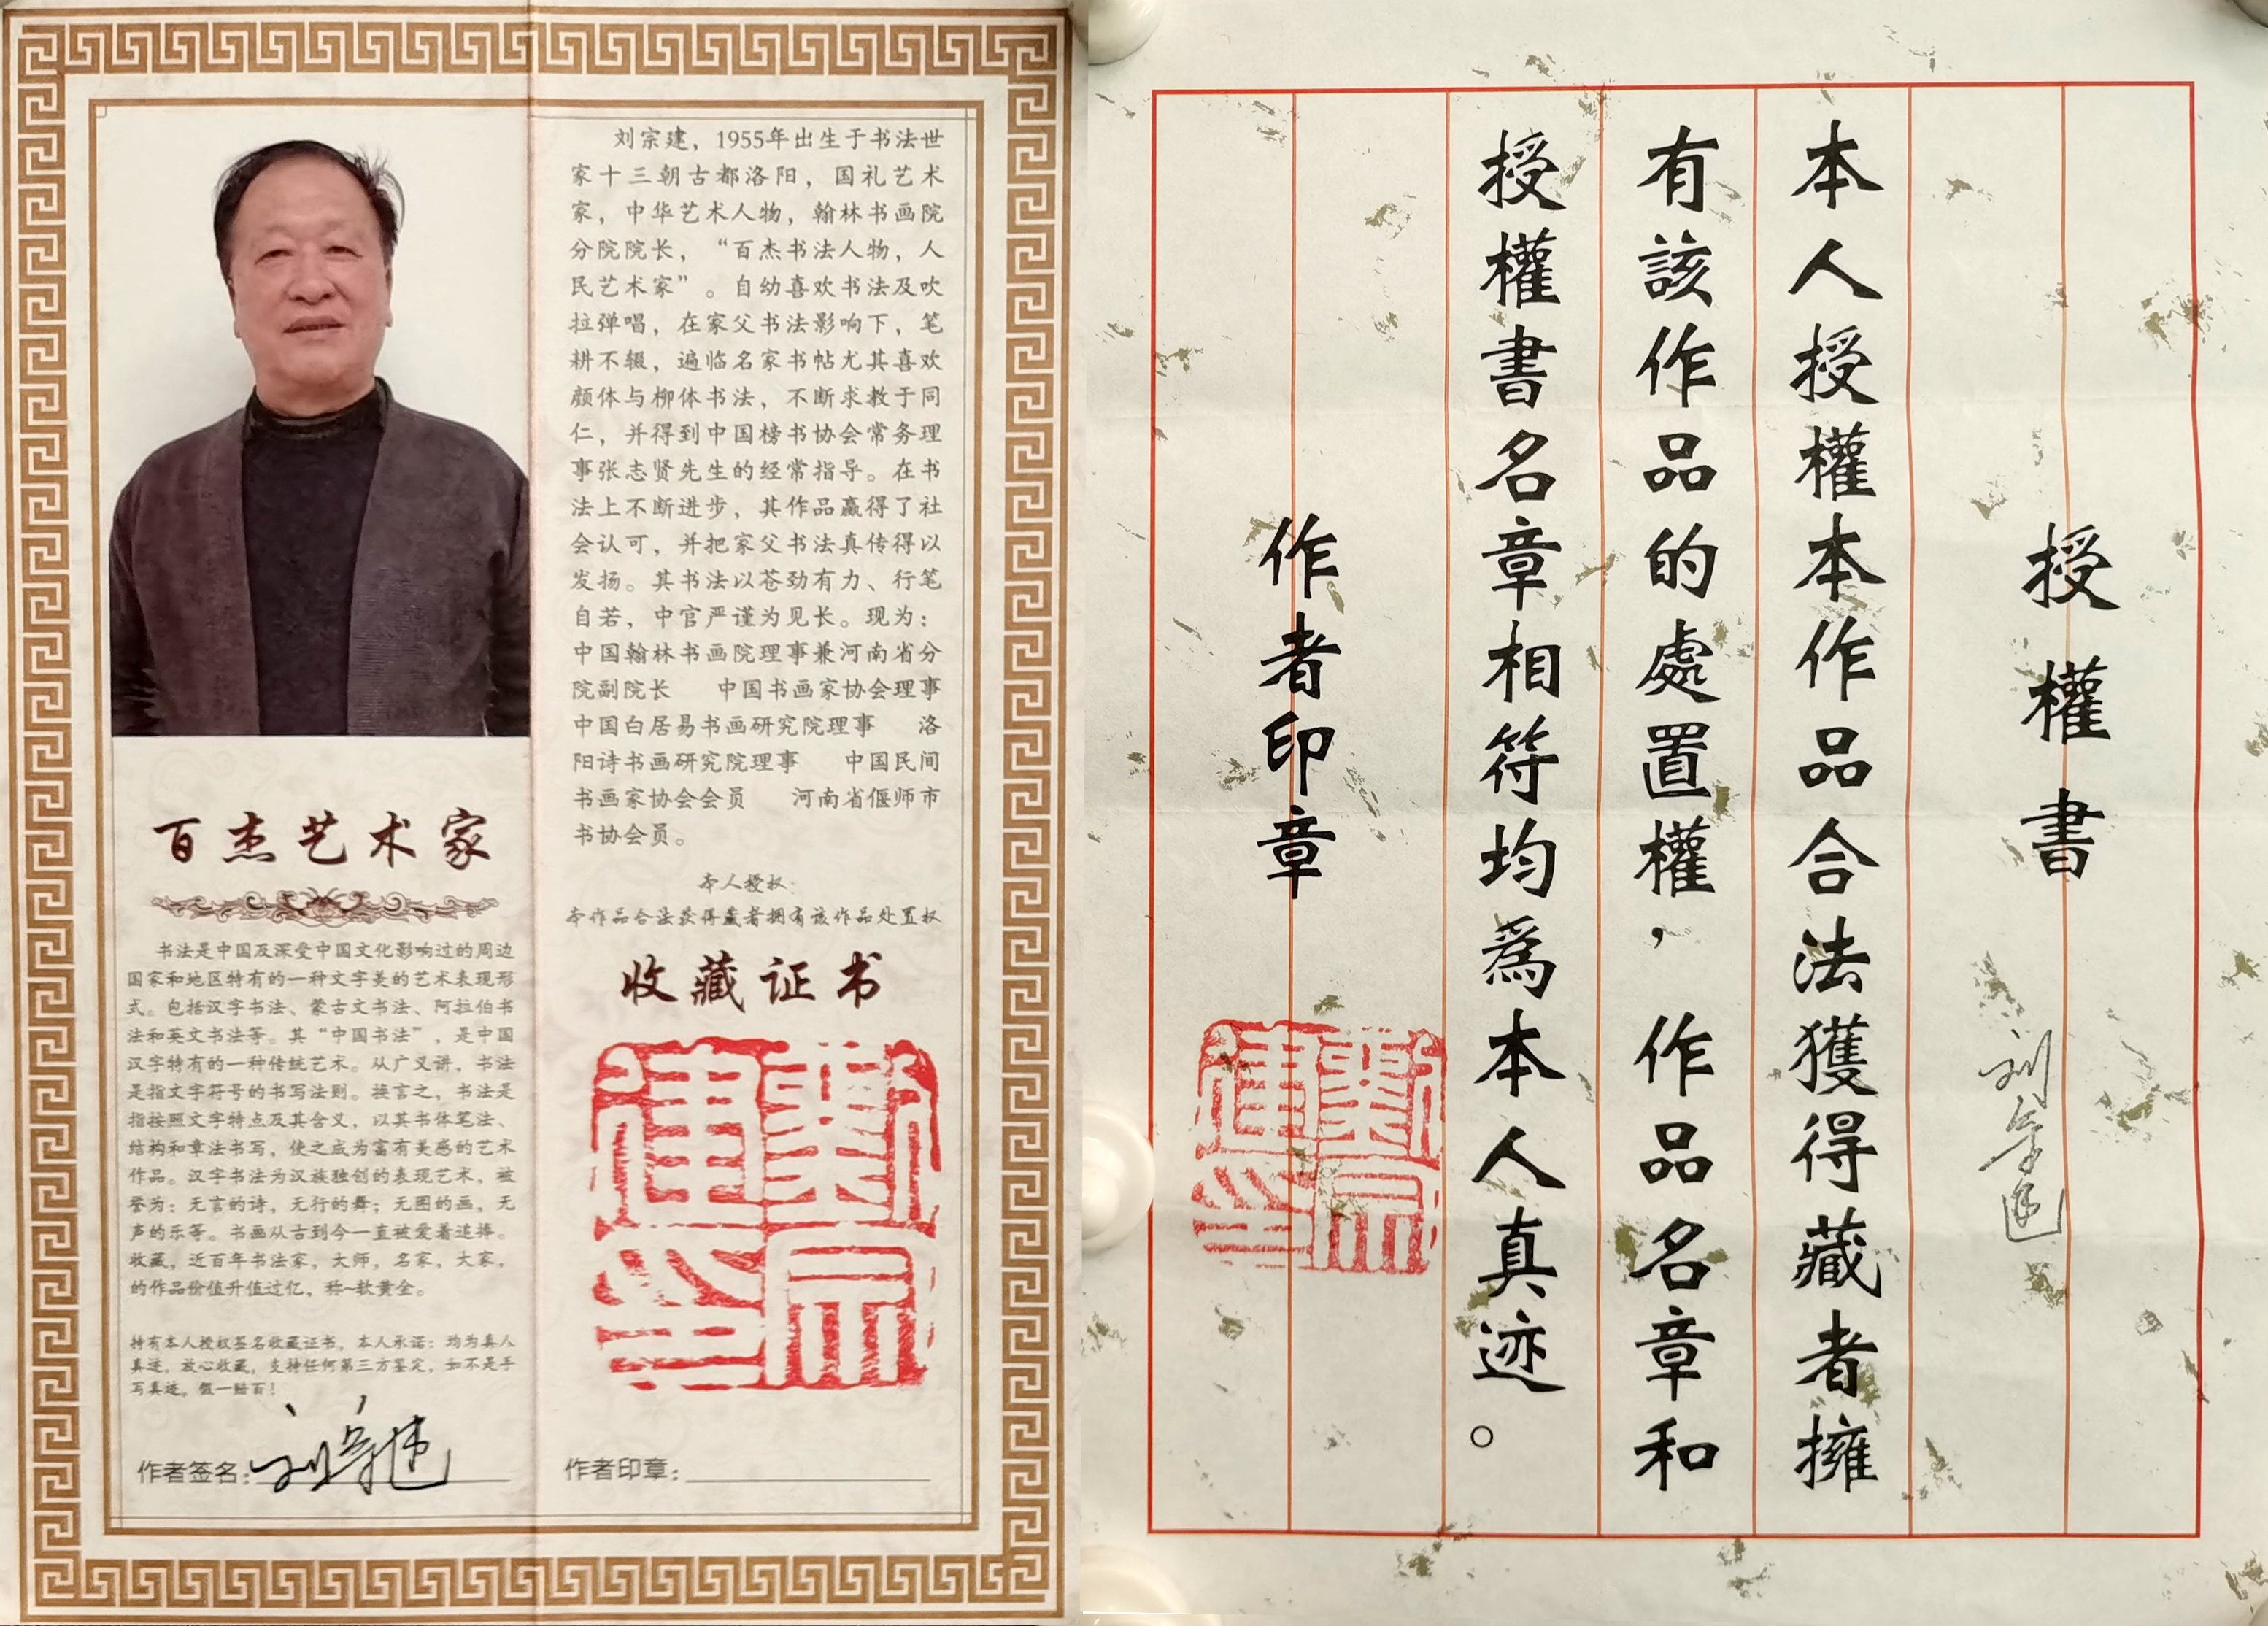 百杰艺术家
书法是中国及深受中国文化影响过的周边
国家和地区特有的一种文字美的艺术表现形
式。包括汉字书法、蒙古文书法、阿拉伯书
法和英文书法等。其“中国书法”，是中国
汉字特有的一种传统艺术。从广义讲，书法
是指文字符号的书写法则。换言之，书法是
指按照文字特点及其含义，以其书体笔法、
结构和章法书写，使之成为富有美感的艺术
作品。汉字书法为汉族独创的表现艺术，被
誉为：无言的诗，无行的舞；无图的画，无
声的乐等。书画从古到今一直被爱着追捧。
收藏，近百年书法家，大师，名家，大家，
的作品价值升值过亿，称~软黄金。
持有本人授权签名收藏证书，本人承诺：均为真人
真迹，放心收藏，支持任何第三方鉴定，如不是手
写真迹，假一赔百！
作者签名：刘宗建
刘宗建，1955年出生于书法世
家十三朝古都洛阳，国礼艺术
家，中华艺术人物，翰林书画院
分院院长，“百杰书法人物，人
民艺术家”。自幼喜欢书法及吹
拉弹唱，在家父书法影响下，笔
耕不辍，遍临名家书帖尤其喜欢
颜体与柳体书法，不断求教于同
仁，并得到中国榜书协会常务理
事张志贤先生的经常指导。在书
法上不断进步，其作品赢得了社
会认可，并把家父书法真传得以
发扬。其书法以苍劲有力、行笔
自若，中官严谨为见长。现为：
中国翰林书画院理事兼河南省分
院副院长 中国书画家协会理事
中国白居易书画研究院理事 洛
阳诗书画研究院理事 中国民间
书画家协会会员 河南省偃师市
书协会员。
本人授权：
本作品合法获得藏者拥有该作品处置权
收藏证书
劉宗
建印
作者印章：
授權書
刘宗建
本人授權本作品合法獲得藏者擁
有該作品的處置權，作品名章和
授權書名章相符均為本人真迹。
作者印章
劉宗
建印